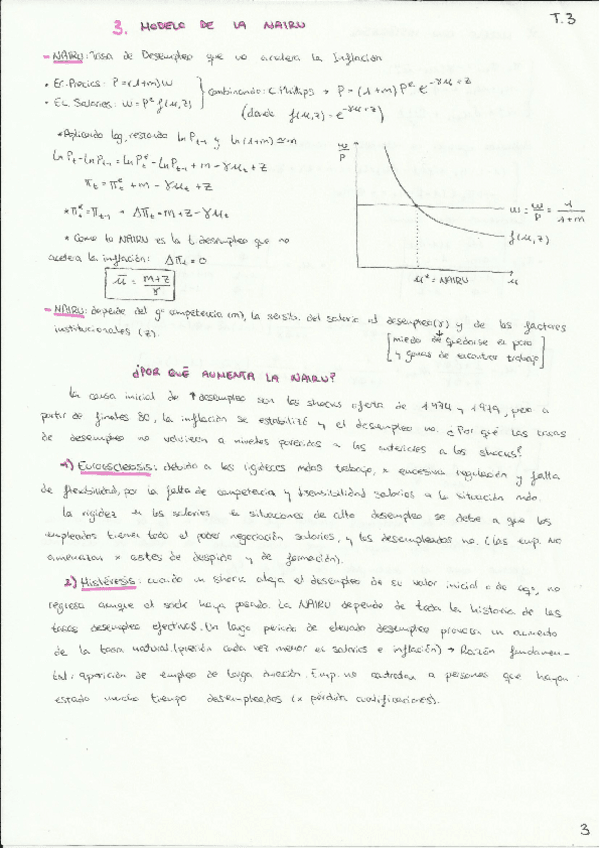 T.3
3. MODELO DE LA NAIRU
- NAIRU: Tasa de Desempleo que no acelera la Inflación
• Ec. Precios: P=(1+m)W
• Ec. Salarios: W=Pᵉ f(μ,z)
Combinando: C. Phillips → P = (1+m) Pᵉ e^-γμ+z
(donde f(μ,z) = e^-γμ+z)
* Aplicando log, restando ln Pt-1 y ln(1+m) ≃ m
ln Pt - ln Pt-1 = ln Pᵉt - ln Pt-1 + m - γμt + z
πt = πᵉt + m - γμt + z
* πᵉt = πt-1 → Δπt = m+z - γμt
* Como la NAIRU es la t. desempleo que no
acelera la inflación: Δπt = 0
μ̄ = m+z / γ
w/P
w = w/P = 1/1+m
f(μ,z)
μ* = NAIRU
μ
- NAIRU: depende del gº competencia (m), la sensib. del salario al desempleo (γ) y de los factores
institucionales (z).
[miedo de quedarse en paro
y ganas de encontrar trabajo]
¿POR QUÉ AUMENTA LA NAIRU?
La causa inicial de ↑desempleo son los shocks oferta de 1974 y 1979, pero a
partir de finales 80, la inflación se estabilizó y el desempleo no. ¿Por qué las tasas
de desempleo no volvieron a niveles parecidos a los anteriores a los shocks?
1) Euroesclerosis: debido a las rigideces mdos trabajo, x excesiva regulación y falta
de flexibilidad, por la falta de competencia y ↓sensibilidad salarios a la situación mdo.
La rigidez de los salarios en situaciones de alto desempleo se debe a que los
empleados tienen todo el poder negociación salarios, y los desempleados no. (las emp. no
amenazan x costes de despido y de formación).
2) Histéresis: cuando un shock aleja el desempleo de su valor inicial o de eqº, no
regresa aunque el shock haya pasado. La NAIRU depende de toda la historia de las
tasas desempleo efectivas. Un largo periodo de elevado desempleo provoca un aumento
de la tasa natural (presión cada vez menor en salarios e inflación) → Razón fundamen-
tal: aparición de empleo de larga duración. Emp. no contratan a personas que hayan
estado mucho tiempo desempleados (x perdida cualificaciones).
3